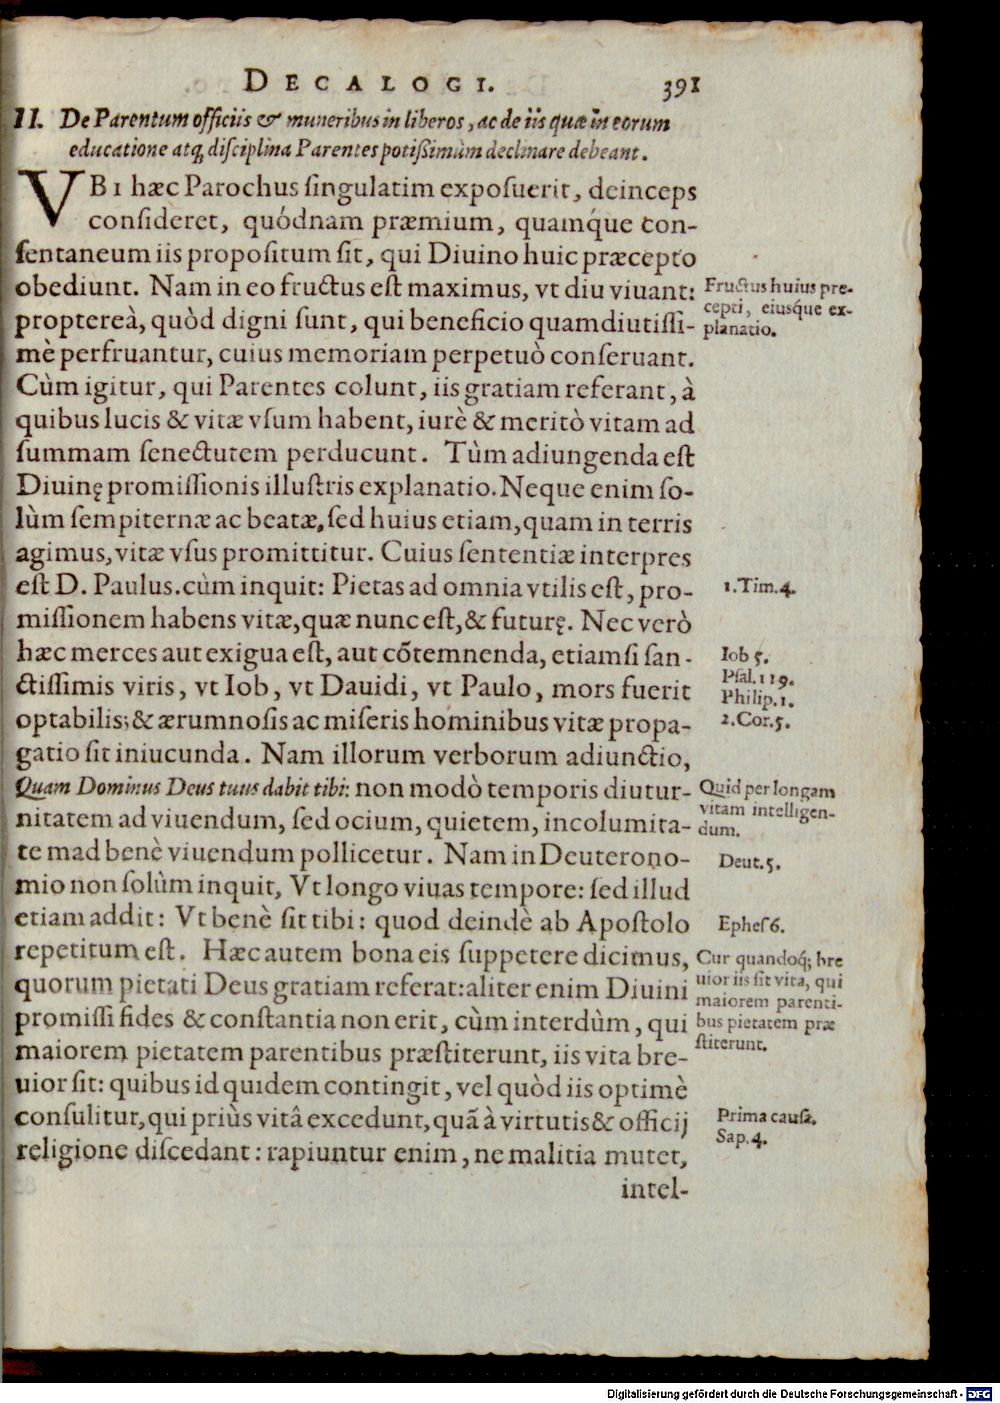 DECALOGI. 391
II. De Parentum officiis & muneribus in liberos, ac de iis quæ in eorum
educatione atq; diſciplina Parentes potißimùm declinare debeant.
VBI hæc Parochus ſingulatim expoſuerit, deinceps
conſideret, quódnam præmium, quamque con-
ſentaneum iis propoſitum ſit, qui Diuino huic præcepto
obediunt. Nam in eo fructus eſt maximus, vt diu viuant:
proptereà, quòd digni ſunt, qui beneficio quamdiutiſſi-
mè perfruantur, cuius memoriam perpetuò conſeruant.
Cùm igitur, qui Parentes colunt, iis gratiam referant, à
quibus lucis & vitæ vſum habent, iurè & meritò vitam ad
ſummam ſenectutem perducunt. Tùm adiungenda eſt
Diuinę promiſſionis illuſtris explanatio. Neque enim ſo-
lùm ſempiternæ ac beatæ, ſed huius etiam, quam in terris
agimus, vitæ vſus promittitur. Cuius ſententiæ interpres
eſt D. Paulus. cùm inquit: Pietas ad omnia vtilis eſt, pro-
miſſionem habens vitæ, quæ nunc eſt, & futurę. Nec verò
hæc merces aut exigua eſt, aut cõtemnenda, etiamſi ſan-
ctiſſimis viris, vt Iob, vt Dauidi, vt Paulo, mors fuerit
optabilis; & ærumnoſis ac miſeris hominibus vitæ propa-
gatio ſit iniucunda. Nam illorum verborum adiunctio,
Quam Dominus Deus tuus dabit tibi: non modò temporis diutur-
nitatem ad viuendum, ſed ocium, quietem, incolumita-
te mad benè viuendum pollicetur. Nam in Deuterono-
mio non ſolùm inquit, Vt longo viuas tempore: ſed illud
etiam addit: Vt benè ſit tibi: quod deindè ab Apoſtolo
repetitum eſt. Hæc autem bona eis ſuppetere dicimus,
quorum pietati Deus gratiam referat: aliter enim Diuini
promiſſi fides & conſtantia non erit, cùm interdùm, qui
maiorem pietatem parentibus præſtiterunt, iis vita bre-
uior ſit: quibus id quidem contingit, vel quòd iis optimè
conſulitur, qui priùs vitâ excedunt, quã à virtutis & officij
religione diſcedant: rapiuntur enim, ne malitia mutet,
intel-
Fructus huius pre-
cepti, eiusque ex-
planatio.
1. Tim. 4.
Iob 5.
Pſal. 119.
Philip. 1.
2. Cor. 5.
Quid per longam
vitam intelligen-
dum.
Deut. 5.
Epheſ 6.
Cur quandoq; bre
uior iis ſit vita, qui
maiorem parenti-
bus pietatem præ
ſtiterunt.
Prima cauſa.
Sap. 4.
Digitalisierung gefördert durch die Deutsche Forschungsgemeinschaft - DFG